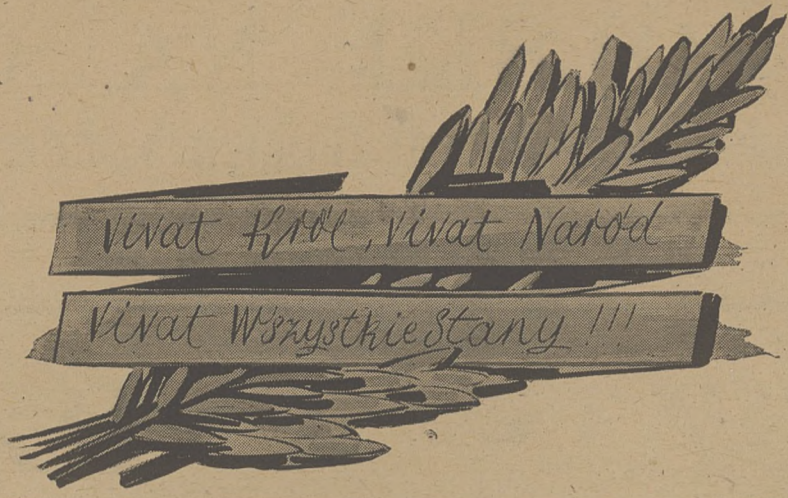 Vivat Król, Vivat Naród
Vivat Wszystkie Stany !!!